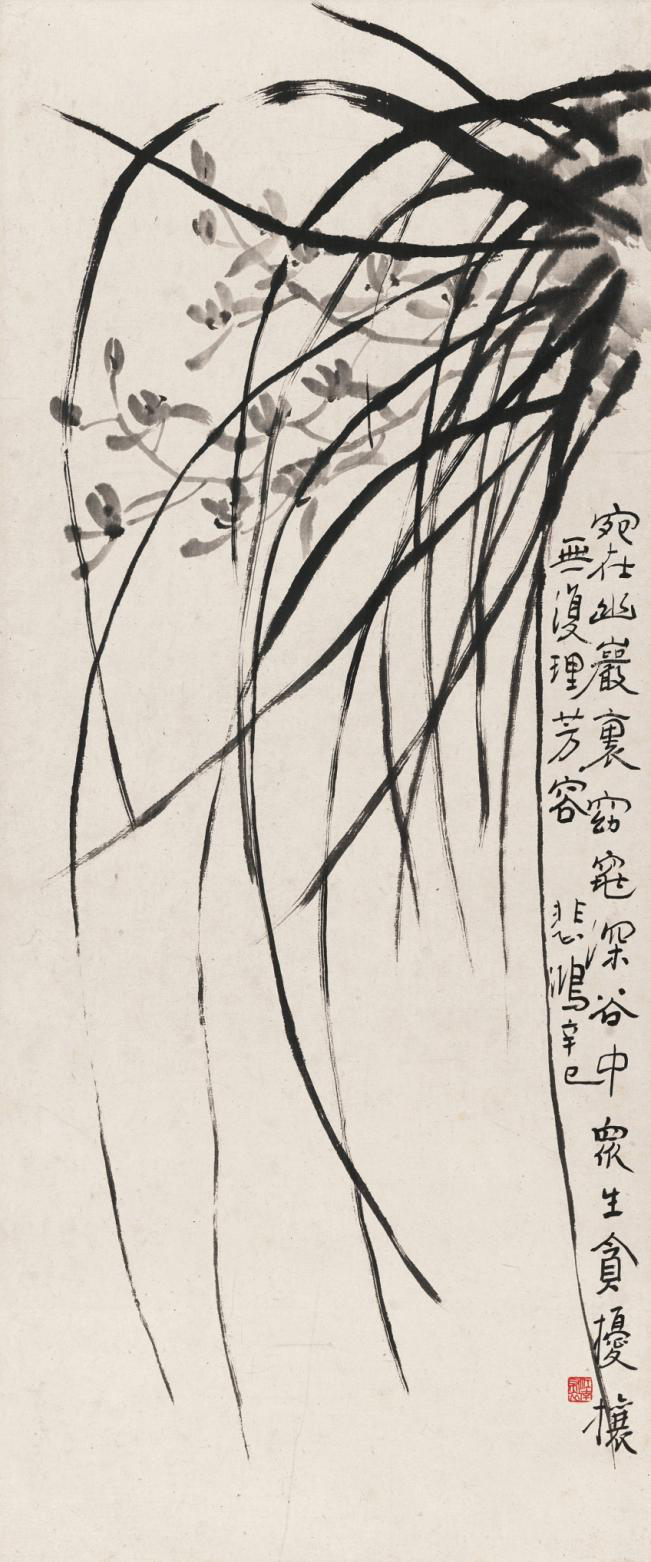 宛在幽巖裏窈窕深谷中眾生貪擾攘
無復理芳容
悲鴻辛巳